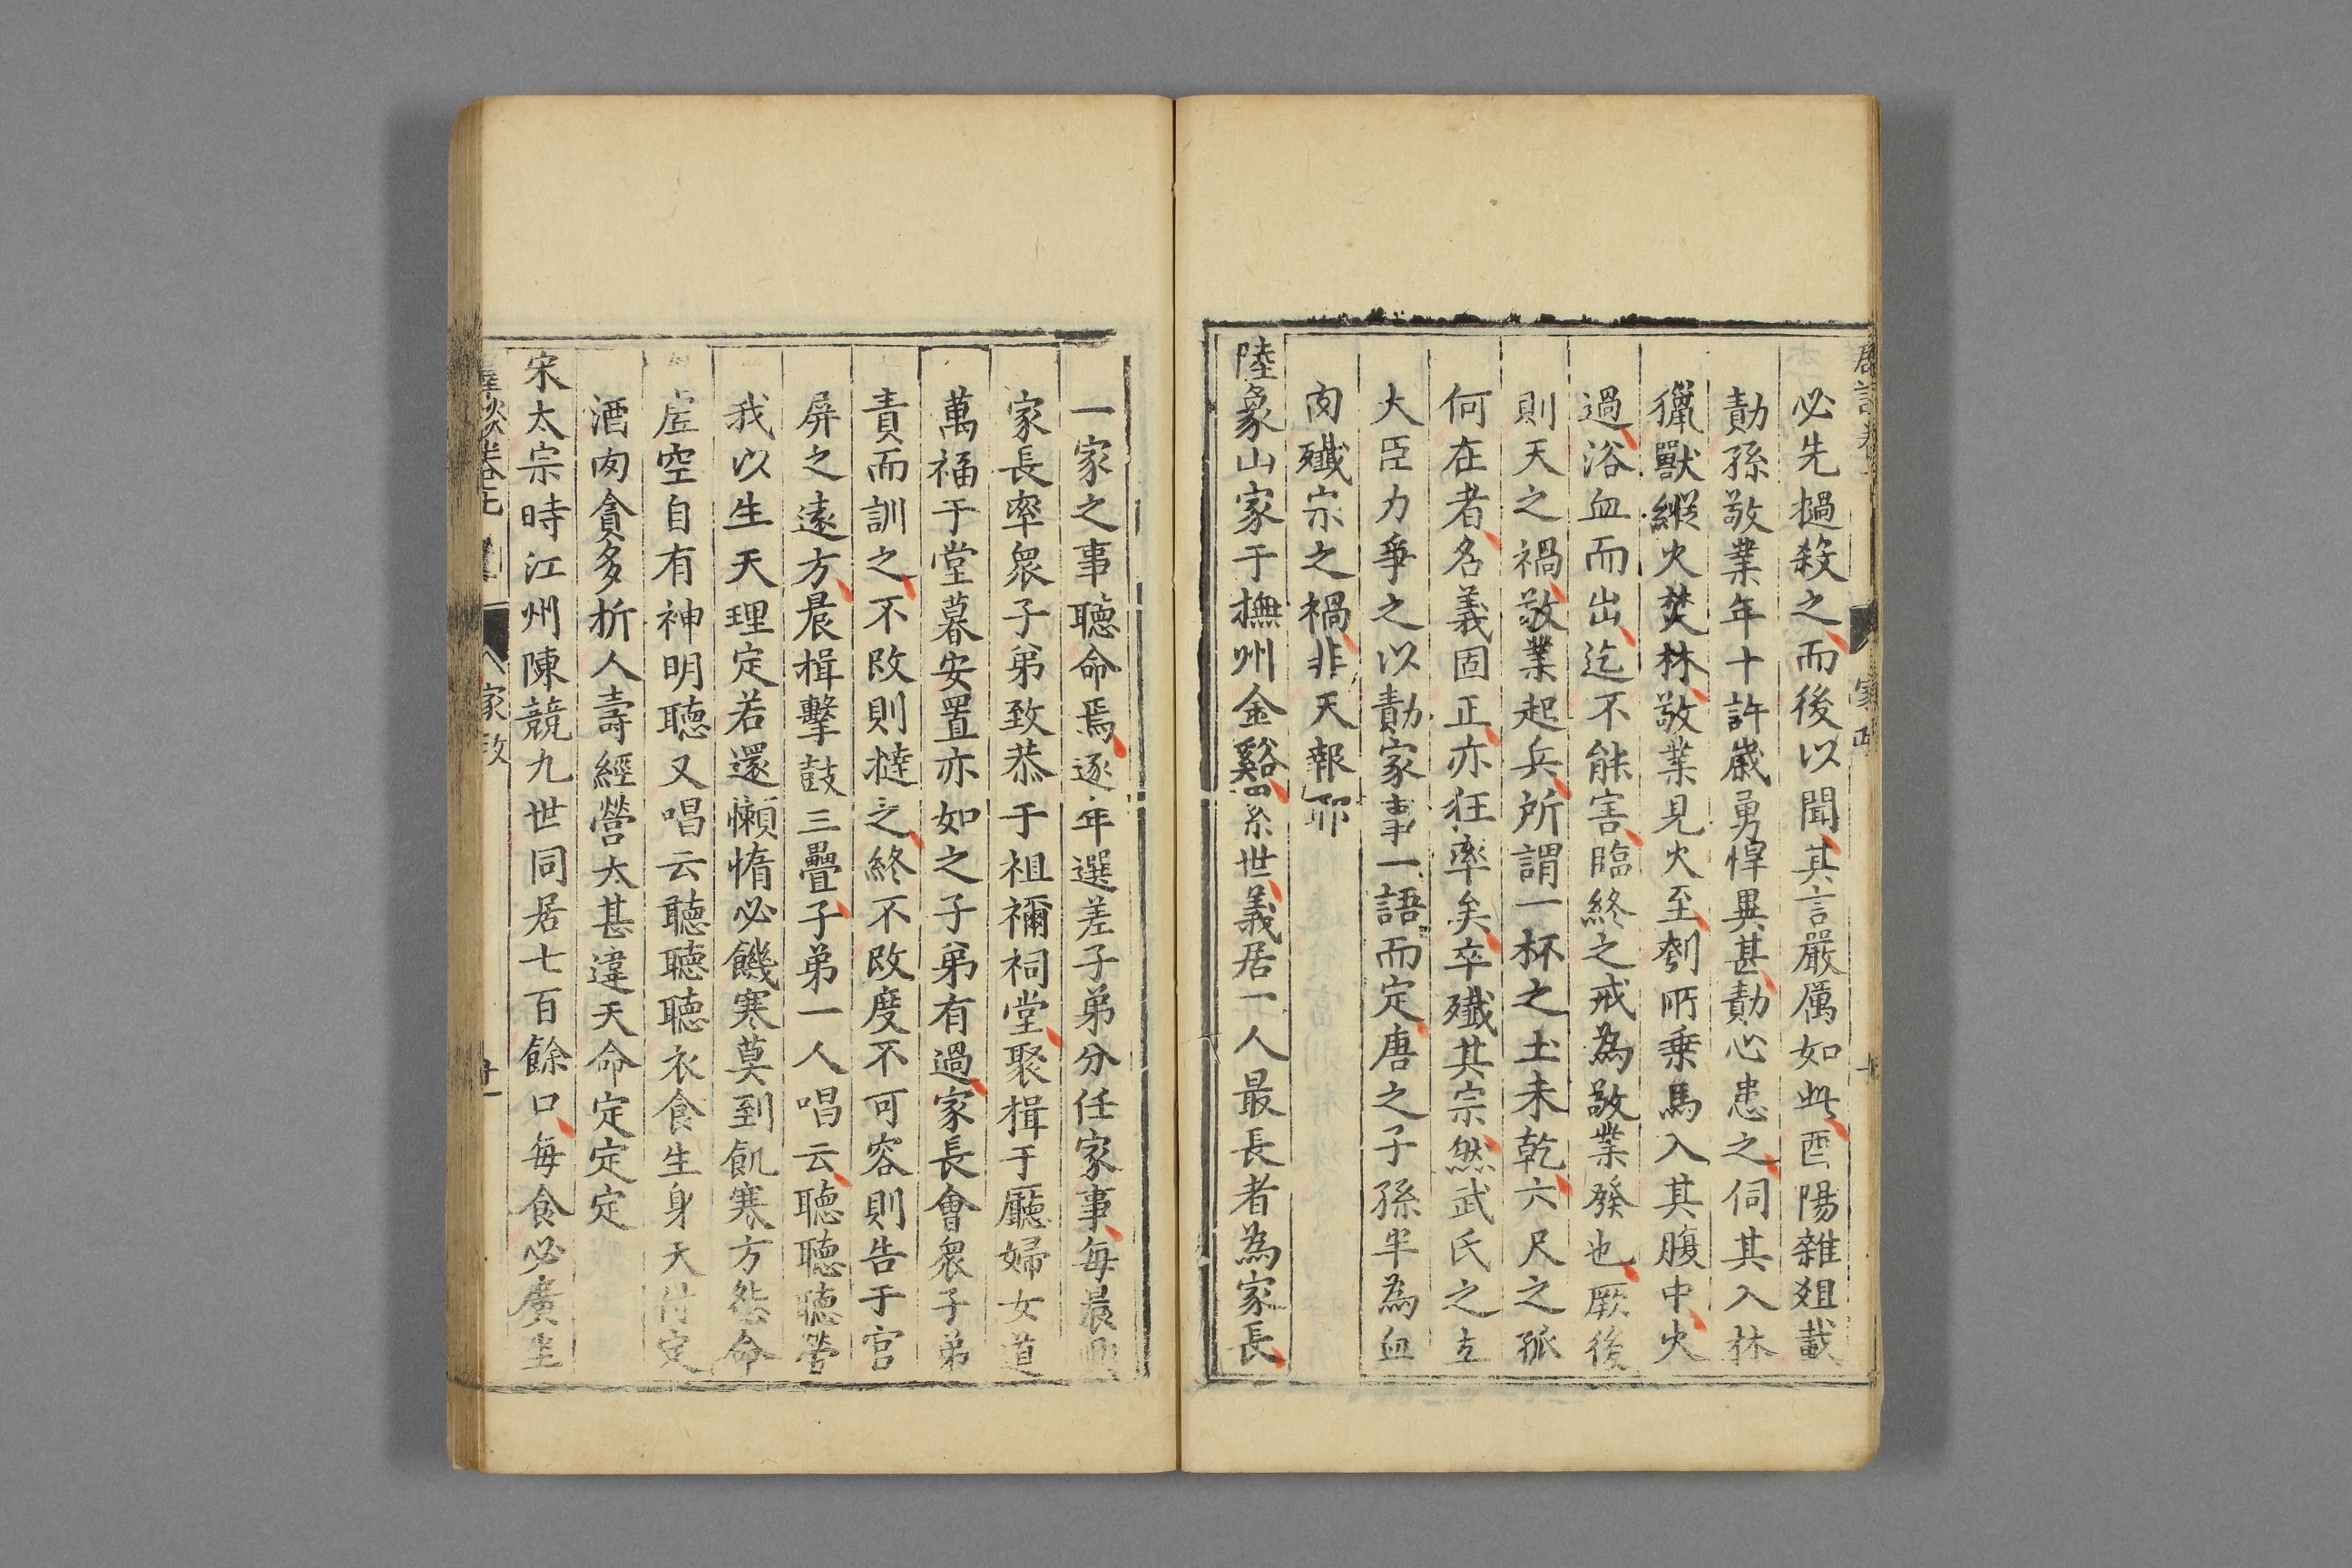 必先撾殺之而後以聞其言嚴厲如此酉陽雜爼載
勣孫敬業年十許歲勇悍異甚勣心患之伺其入林
獵獸縱火焚林敬業見火至刳所乗馬入其腹中火
過浴血而出迄不能害臨終之戒為敬業發也厥後
則天之禍敬業起兵所謂一杯之土未乾六尺之孤
何在者名義固正亦狂率矣卒殲其宗然武氏之立
大臣力爭之以勣家事一語而定唐之子孫半為血
肉殲宗之禍非天報耶
陸象山家于撫州金谿累世義居一人最長者為家長
一家之事聽命焉逐年選差子弟分任家事每晨興
家長率衆子弟致恭于祖禰祠堂聚揖于廳婦女道
萬福于堂暮安置亦如之子弟有過家長會衆子弟
責而訓之不改則撻之終不改度不可容則告于官
屏之遠方晨揖擊鼓三疊子弟一人唱云聽聽聽勞
我以生天理定若還懶惰必饑寒莫到飢寒方怨命
虛空自有神明聽又唱云聽聽聽衣食生身天付定
酒肉貪多折人壽經營太甚違天命定定定
宋太宗時江州陳競九世同居七百餘口每食必廣坐
家政